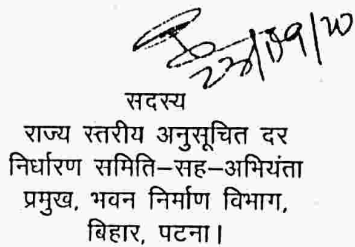 23/09/20
सदस्य
राज्य स्तरीय अनुसूचित दर
निर्धारण समिति–सह–अभियंता
प्रमुख, भवन निर्माण विभाग,
बिहार, पटना।